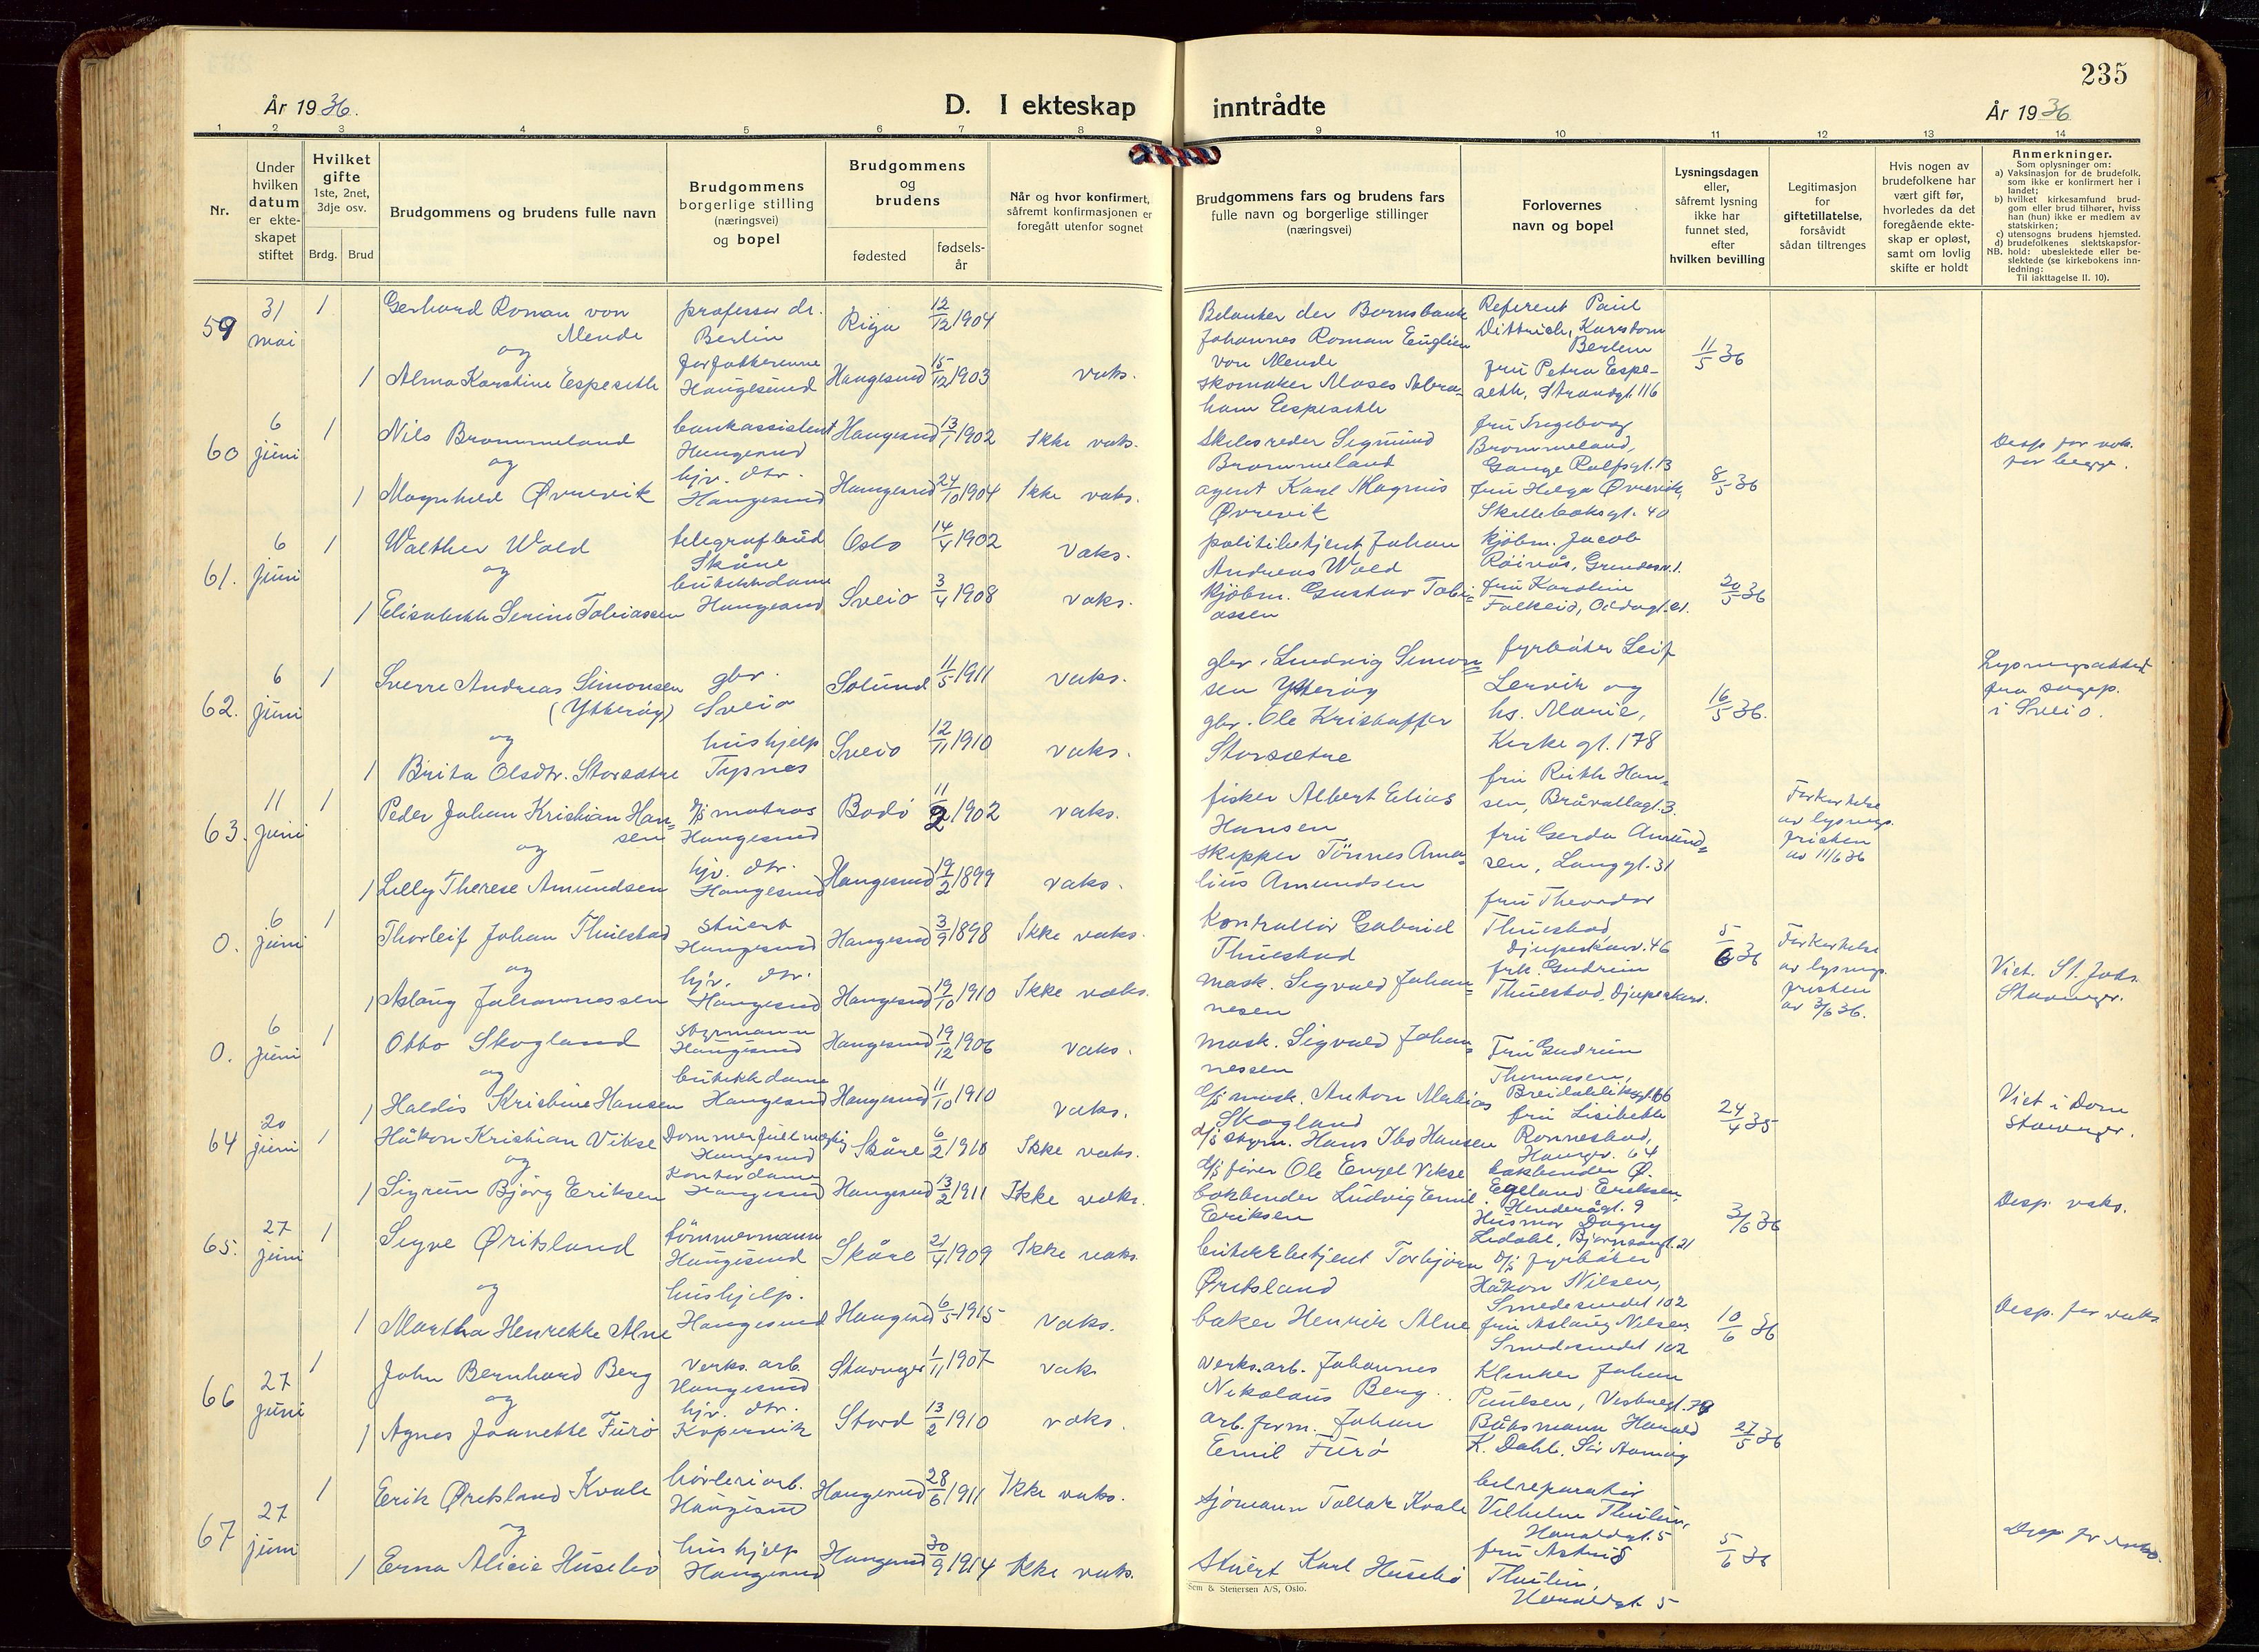 235
År 1936.
D. I ekteskap inntrådte
År 1936
1 2 3 4 5 6 7 8 9 10 11 12 13 14
Nr.
Under hvilken datum er ekteskapet stiftet
Hvilket gifte 1ste, 2net, 3dje osv.
Brdg. Brud
Brudgommens og brudens fulle navn
Brudgommens borgerlige stilling (næringsvei) og bopel
Brudgommens og brudens
fødested
fødsels-år
Når og hvor konfirmert, såfremt konfirmasjonen er foregått utenfor sognet
Brudgommens fars og brudens fars fulle navn og borgerlige stillinger (næringsvei)
Forlovernes navn og bopel
Lysningsdagen eller, såfremt lysning ikke har funnet sted, efter hvilken bevilling
Legitimasjon for giftetillatelse, forsåvidt sådan tiltrenges
Hvis nogen av brudefolkene har vært gift før, hvorledes da det foregående ekteskap er opløst, samt om lovlig skifte er holdt
Anmerkninger.
Som oplysninger om:
a) Vaksinasjon for de brudefolk, som ikke er konfirmert her i landet;
b) hvilket kirkesamfund brudgom eller brud tilhører, hviss han (hun) ikke er medlem av statskirken;
c) utensogns brudens hjemsted.
d) brudefolkenes slektskapsforhold: ubeslektede eller beslektede (se kirkebokens innledning:
NB. Til iakttagelse II. 10).
59 31 mai 1 Gerhard Roman von Mende professor dr. Berlin Riga 12/12 1904
og
1 Alma Karstine Espeseth Haugesund Haugesund 15/12 1903 vaks.
Johannes Roman Eugen von Mende
skomaker Moses Abraham Espeseth
Referent Paul Dittrich, Berlin
fru Petra Espeseth, Strandgt. 116
11/5 36
60 6 juni 1 Nils Brommeland bankassistent Haugesund Haugesund 13/1 1902 Ikke vaks.
og
1 Magnhild Øvrevik hjv. dtr. Haugesund Haugesund 24/10 1904 Ikke vaks.
Skibsreder Sigmund Brommeland
agent Karl Magnus Øvrevik
fru Ingeborg Brommeland, Gange Rolfsgt. 13
fru Helga Øvrevik, Skillebeksgt. 40
8/5 36
Desp for vak. for begge.
61. 6 juni 1 Walther Wold telegrafbud Skåne Oslo 14/4 1902 vaks.
og
1 Elisabeth Serine Tobiassen butikkdame Haugesund Sveio 3/4 1908 vaks.
politibetjent Johan Andreas Wold
kjøbm. Gustav Tobiassen
kjøbm. Jacob
fru Karoline Falkeid,
20/5 36
62. 6 juni 1 Sverre Andreas Simonsen (Ytterøy) gbr. Sveio Solund 11/5 1911 vaks.
og
1 Brita Olsdtr. Storsætre hushjelp Tysnes Sveio 12/11 1910 vaks.
gbr. Ludvig Simonsen Ytterøy
gbr. Ole Kristoffer Storsætre
fyrbøter Leif Lervik og hs. Marie, Kirkegt. 178
16/5 36.
Lysningsattest fra sogep. i Sveio.
63. 11 juni 1 Peder Johan Kristian Hansen d/s matros Haugesund Bodø 11/2 1902 vaks.
og
1 Lilly Therese Amundsen hjv. dtr. Haugesund Haugesund 19/2 1899 vaks.
fisker Albert Elias Hansen
skipper Tönnes Amalius Amundsen
fru Ruth Hansen, Bråvallagt. 3.
fru Gerda Amundsen, Langgt. 31
Forkortelse av lysnings fristen av 11/6 36
0. 6 juni 1 Thorleif Johan Thuestad stuert Haugesund Haugesund 3/9 1898 Ikke vaks.
og
1 Aslaug Johannessen hjv. dtr. Haugesund Haugesund 19/10 1910 Ikke vaks.
Kontrollør Gabriel Thuestad
mask. Sigvald Johannesen
fru Theodor Thuestad, Djupaskarv. 46
frk. Gudrun Thuestad, Djupaskarv.
5/6 36
Forkortelse av lysnings fristen av 3/6 36.
Viet. St. Joh. Stavanger.
0. 6 juni 1 Otto Skogland styrmann Haugesund Haugesund 19/12 1906 vaks.
og
1 Haldis Kristine Hansen butikkdame Haugesund Haugesund 11/10 1910 vaks.
mask. Sigvald Johannessen
d/s mask. Anton Mathias Skogland
d/s styrm. Hans Ibo Hansen
Fru Gudrun Thomasen, Breidablikgt. 66
fru Lisbeth Ronnestad, Haugv. 64
24/4 35
Viet i Dom Stavanger.
64 20 juni 1 Håkon Kristian Vikse Dommerfullmektig Haugesund Skåre 6/2 1910 Ikke vaks.
og
1 Sigrun Bjørg Eriksen Kontordame Haugesund Haugesund 13/2 1911 Ikke vaks.
d/s fører Ole Engel Vikse
bokbinder Ludvig Emil Eriksen
bokbinder Ø. Egeland Eriksen
Husmor Dagny
3/6 36
Desp. vaks.
65. 27 juni 1 Sigve Øritsland tömmermann Haugesund Skåre 21/4 1909 Ikke vaks.
og
1 Martha Henrikke Alne hushjelp. Haugesund Haugesund 6/5 1915 vaks.
butikkbetjent Torbjørn Øritsland
baker Henrik Alne
d/s fyrbøter Håkon Nilsen, Smedesundet 102
fru Aslaug Nilsen Smedesundet 102
10/6 36
Desp. for vaks
66 27 juni 1 John Bernhard Berg verks. arb. Haugesund Stavanger 1/11 1907 vaks
og
1 Agnes Jeanette Furö hjv. dtr. Kopervik Stord 13/2 1910 vaks.
verks.arb. Johannes Nikolaus Berg.
arb. form. Johan Emil Furö
Klinker Johan Paulsen,
Båtsmann Harald K. Dahl.
27/5 36
67 27 juni 1 Erik Øritsland Kvale Haugesund Haugesund 28/6 1911 Ikke vaks.
og
1 Erna Alicie Husebö hushjelp Haugesund Haugesund 30/9 1914 Ikke vaks.
sjömann Tollak Kvale
Stuert Karl Husebö
bilreparatör Vilhelm Thulin, Haraldgt. 5
fru Astrid Thulin, Haraldgt 5
5/6 36
Desp for vaks.
Sem & Stenersen A/S, Oslo.